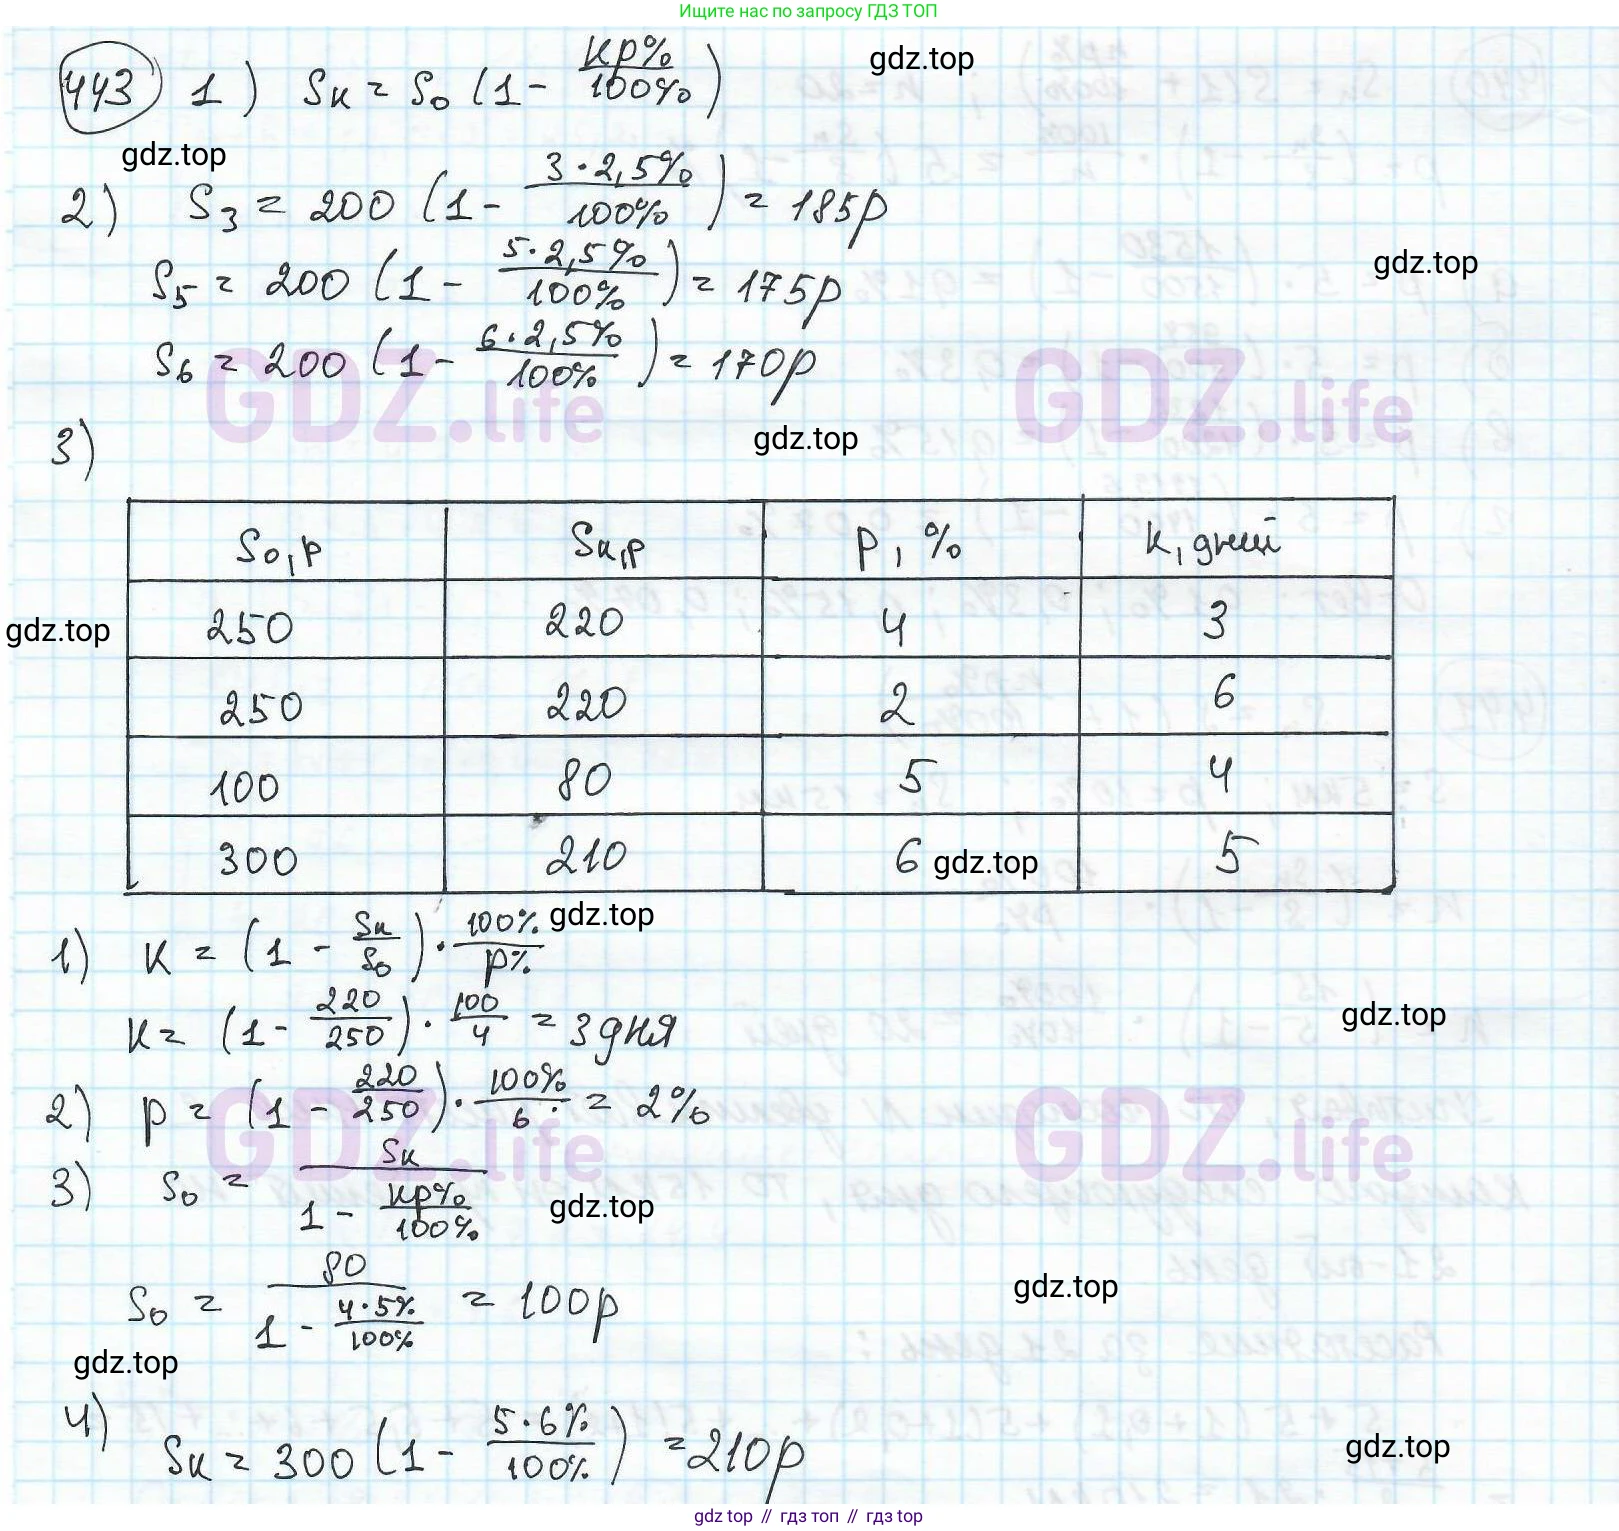 Ищите нас по запросу ГДЗ ТОП
443 1) Sк = S₀ (1 - кр%/100%)
gdz.top
gdz.top
2) S₃ = 200 (1 - 3·2,5%/100%) = 185р
S₅ = 200 (1 - 5·2,5%/100%) = 175р
gdz.top
S₆ = 200 (1 - 6·2,5%/100%) = 170р
GDZ.life GDZ.life
3)
gdz.top
S₀,р Sк,р р, % к, дней
250 220 4 3
gdz.top
250 220 2 6
100 80 5 4
300 210 6 5
gdz.top
gdz.top
1) К = (1 - Sк/S₀) · 100%/р%
К = (1 - 220/250) · 100/4 = 3 дня
gdz.top
2) р = (1 - 220/250) · 100%/6 = 2%
GDZ.life GDZ.life
3) S₀ = Sк/(1 - кр%/100%)
gdz.top
S₀ = 80/(1 - 4·5%/100%) = 100р
gdz.top
gdz.top
4) Sк = 300 (1 - 5·6%/100%) = 210р
gdz.top
gdz.top // гдз топ // гдз.top